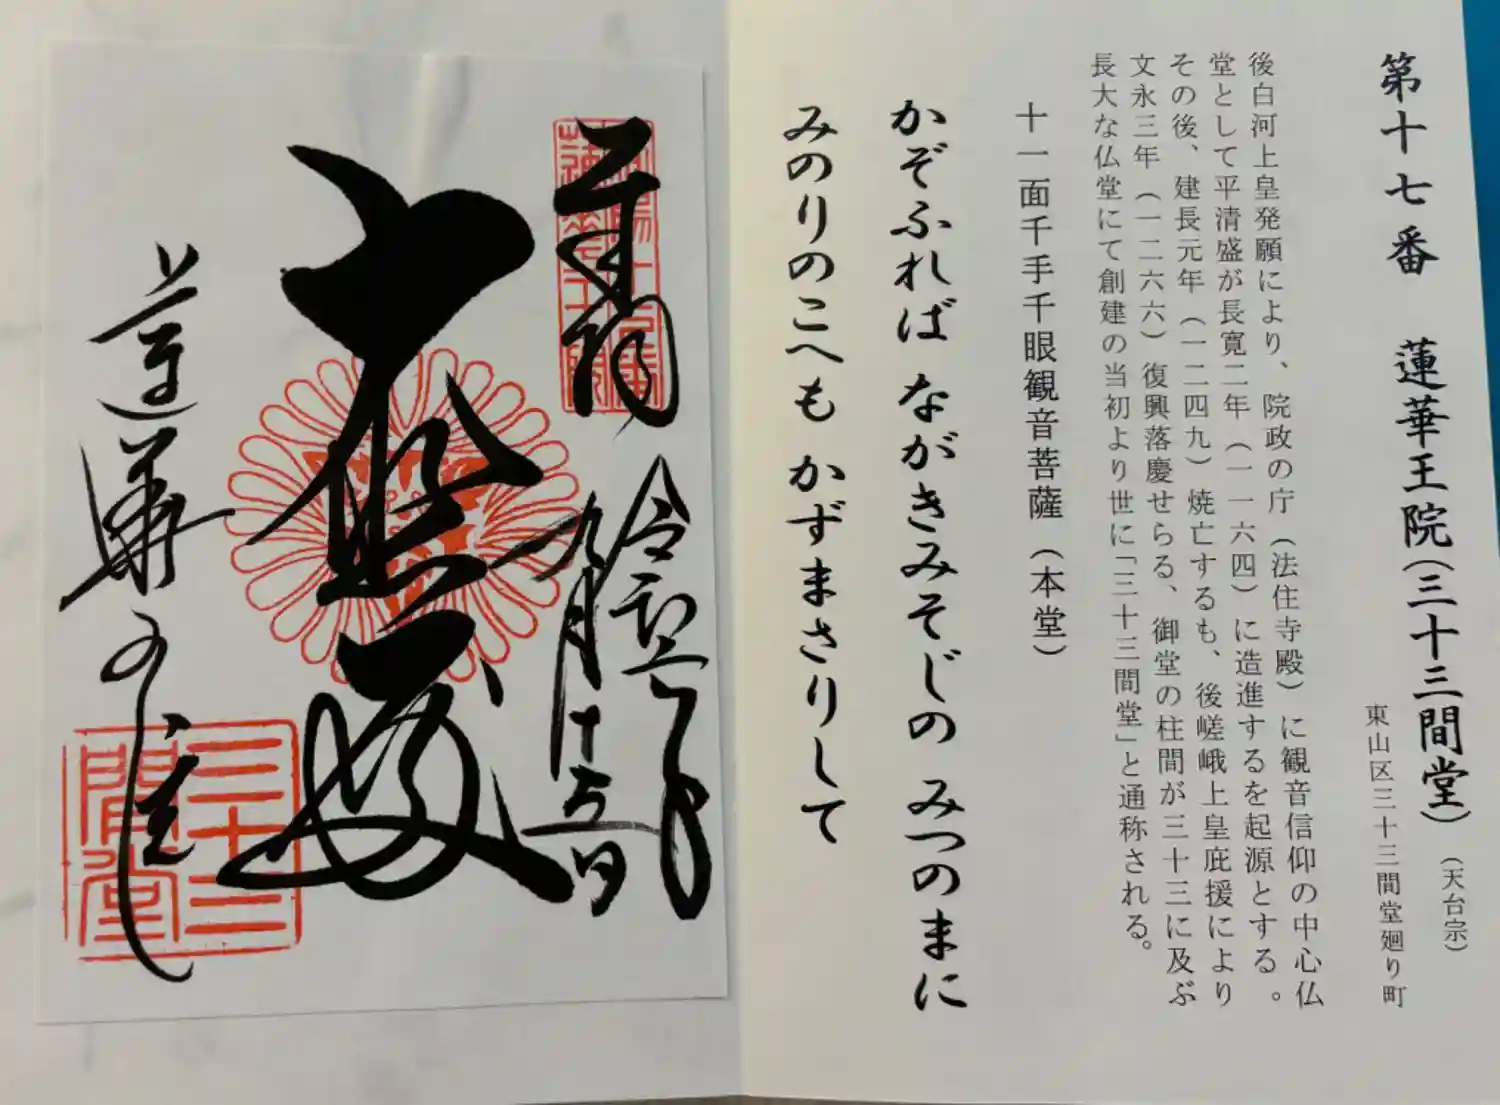 第十七番 蓮華王院(三十三間堂)
(天台宗)
東山区三十三間堂廻り町
後白河上皇発願により、院政の庁(法住寺殿)に観音信仰の中心仏
堂として平清盛が長寛二年(一一六四)に造進するを起源とする。
その後、建長元年(一二四九)焼亡するも、後嵯峨上皇庇援により
文永三年(一二六六)復興落慶せらる、御堂の柱間が三十三に及ぶ
長大な仏堂にて創建の当初より世に「三十三間堂」と通称される。
十一面千手千眼観音菩薩(本堂)
かぞふれば ながきみそじの みつのまに
みのりのこへも かずまさりして
奉拝
令和二年
九月十五日
大悲殿
蓮華王院
三十三
間堂